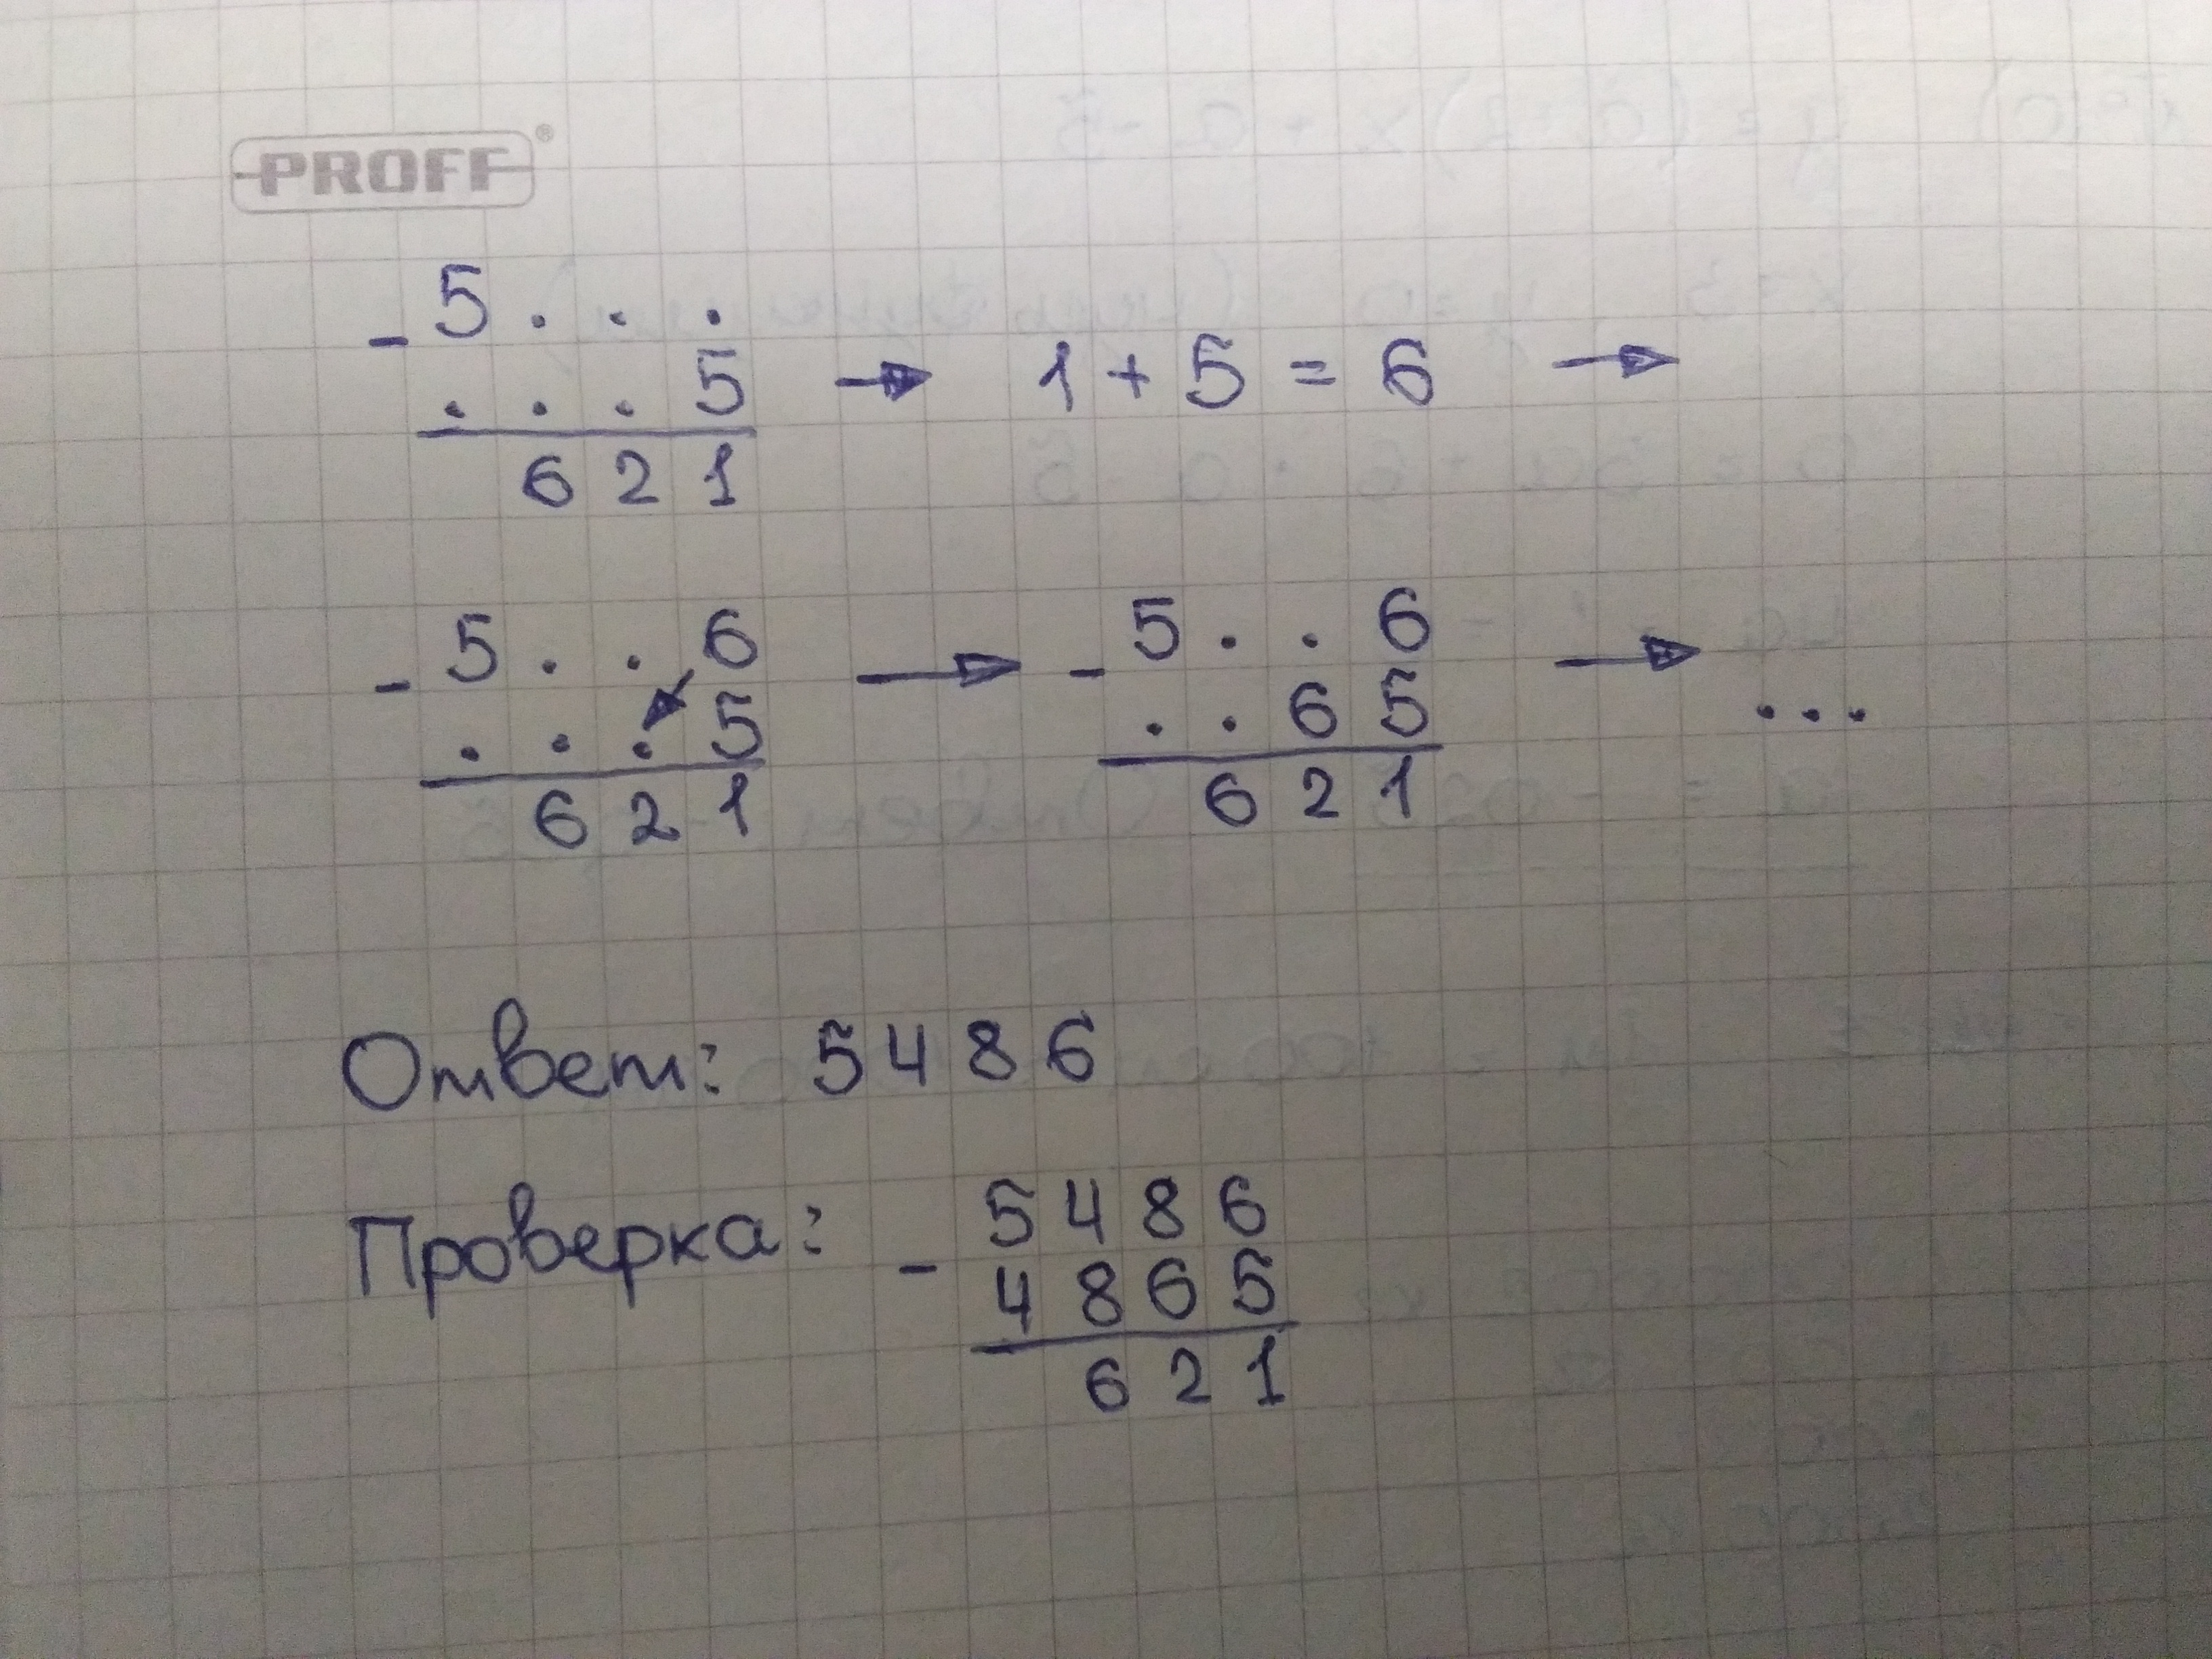 PROFF®
- 5 . . .
. . . 5 → 1 + 5 = 6 →
6 2 1
- 5 . . 6 → - 5 . . 6 →
. . . 5 . . 6 5 ...
6 2 1 6 2 1
Ответ: 5 4 8 6
Проверка: - 5 4 8 6
4 8 6 5
6 2 1